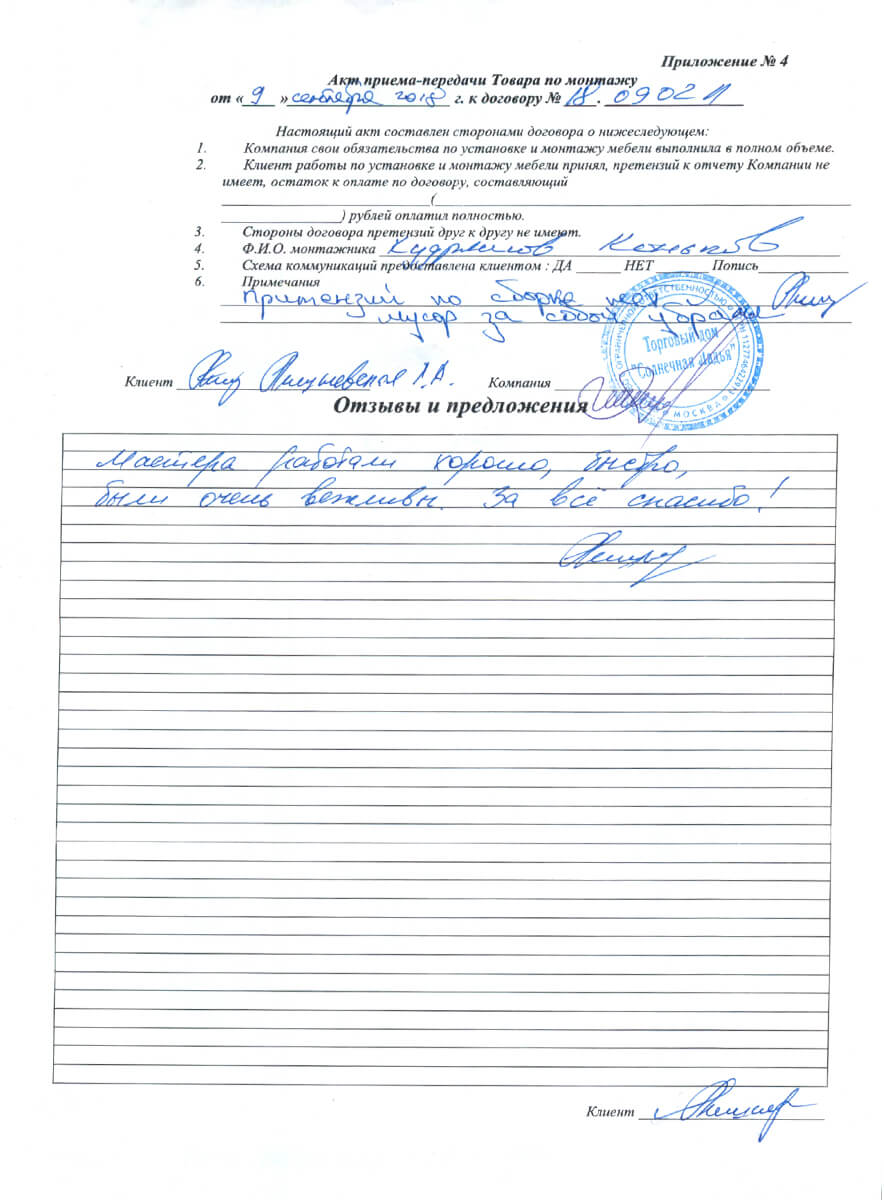 Приложение № 4
Акт приема-передачи Товара по монтажу
от « 9 » сентября 2018 г. к договору № 18. 090211
Настоящий акт составлен сторонами договора о нижеследующем:
1. Компания свои обязательства по установке и монтажу мебели выполнила в полном объеме.
2. Клиент работы по установке и монтажу мебели принял, претензий к отчету Компании не
имеет, остаток к оплате по договору, составляющий
(
) рублей оплатил полностью.
3. Стороны договора претензий друг к другу не имеют.
4. Ф.И.О. монтажника
5. Схема коммуникаций предоставлена клиентом : ДА ______ НЕТ ______ Попись
6. Примечания
Притензий по сборке нет
мусор за собой убрали
Торговый дом
"Солнечная Ладья"
МОСКВА
Клиент Л.А. Компания
Отзывы и предложения
Мастера работали хорошо, быстро,
были очень вежливы. За всё спасибо!
Клиент